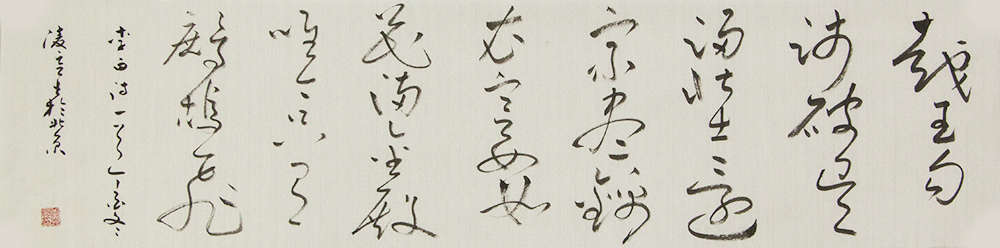 越王勾
践破吴
归壮士还
家尽锦
衣宫女如
花满春殿
唯今只有
鹧鸪飞
李白诗一首
书于北京